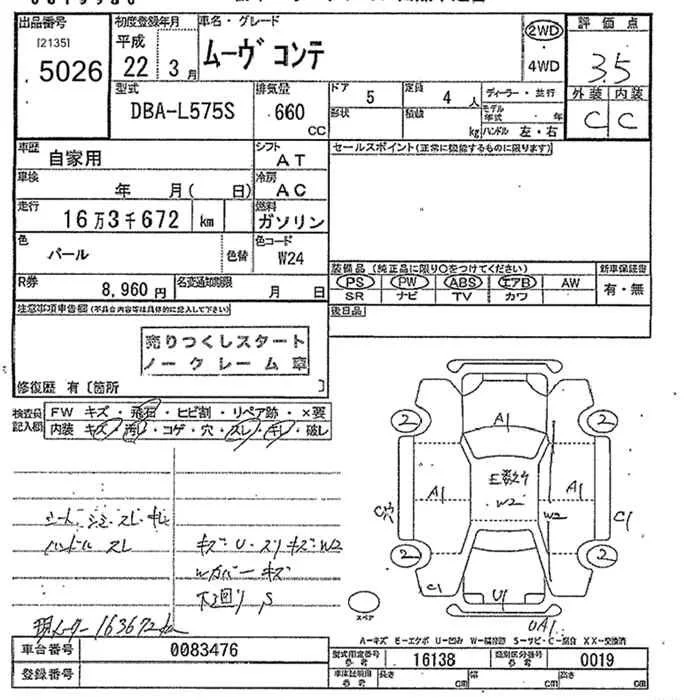 出品番号
[2135]
5026
初度登録年月
平成
22年 3月
車名・グレード
ムーヴ コンテ
2WD
4WD
評価点
3.5
外装 内装
C C
型式
DBA-L575S
排気量
660
CC
ドア 5
定員 4 人
形状
積載 kg
ディーラー・並行
モデル年式 ・ 年
ハンドル 左・右
車歴
自家用
シフト
AT
セールスポイント(正常に機能するものに限ります)
車検
年 月( 日)
冷房
AC
走行
16万3千672 km
燃料
ガソリン
色
パール
色替
色コード
W24
R券
8,960円
名変通知期限
月 日
装備品 (純正品に限り○をつけてください)
PS PW ABS エアB AW
SR ナビ TV カワ
新車保証書
有・無
後日品
注意事項申告欄(不具合内容等は具体的に記入して下さい)
売りつくしスタート
ノークレーム車
修復歴 有〔箇所 〕
検査員記入欄
FW キズ・飛石・ヒビ割・リペア跡・×要
内装 キズ・汚レ・コゲ・穴・スレ・キレ・破レ
シート シミ スレ キレ
ハンドル スレ
キズ・U・スリキズ・W2
Wカバー キズ
下回り S
現メーター 163672km
2 2
A1
E数ケ
W2
A1 A1
W2
C穴
C1
2 2
C1
U1
UA1
スペア
A-キズ E-エクボ U-凹み W-補修跡 S-サビ・C-腐食 XX-交換済
車台番号
0083476
登録番号
型式指定番号
参考
16138
類別区分番号
参考
0019
車体証明用
参考
長さ cm
幅 cm
高さ cm